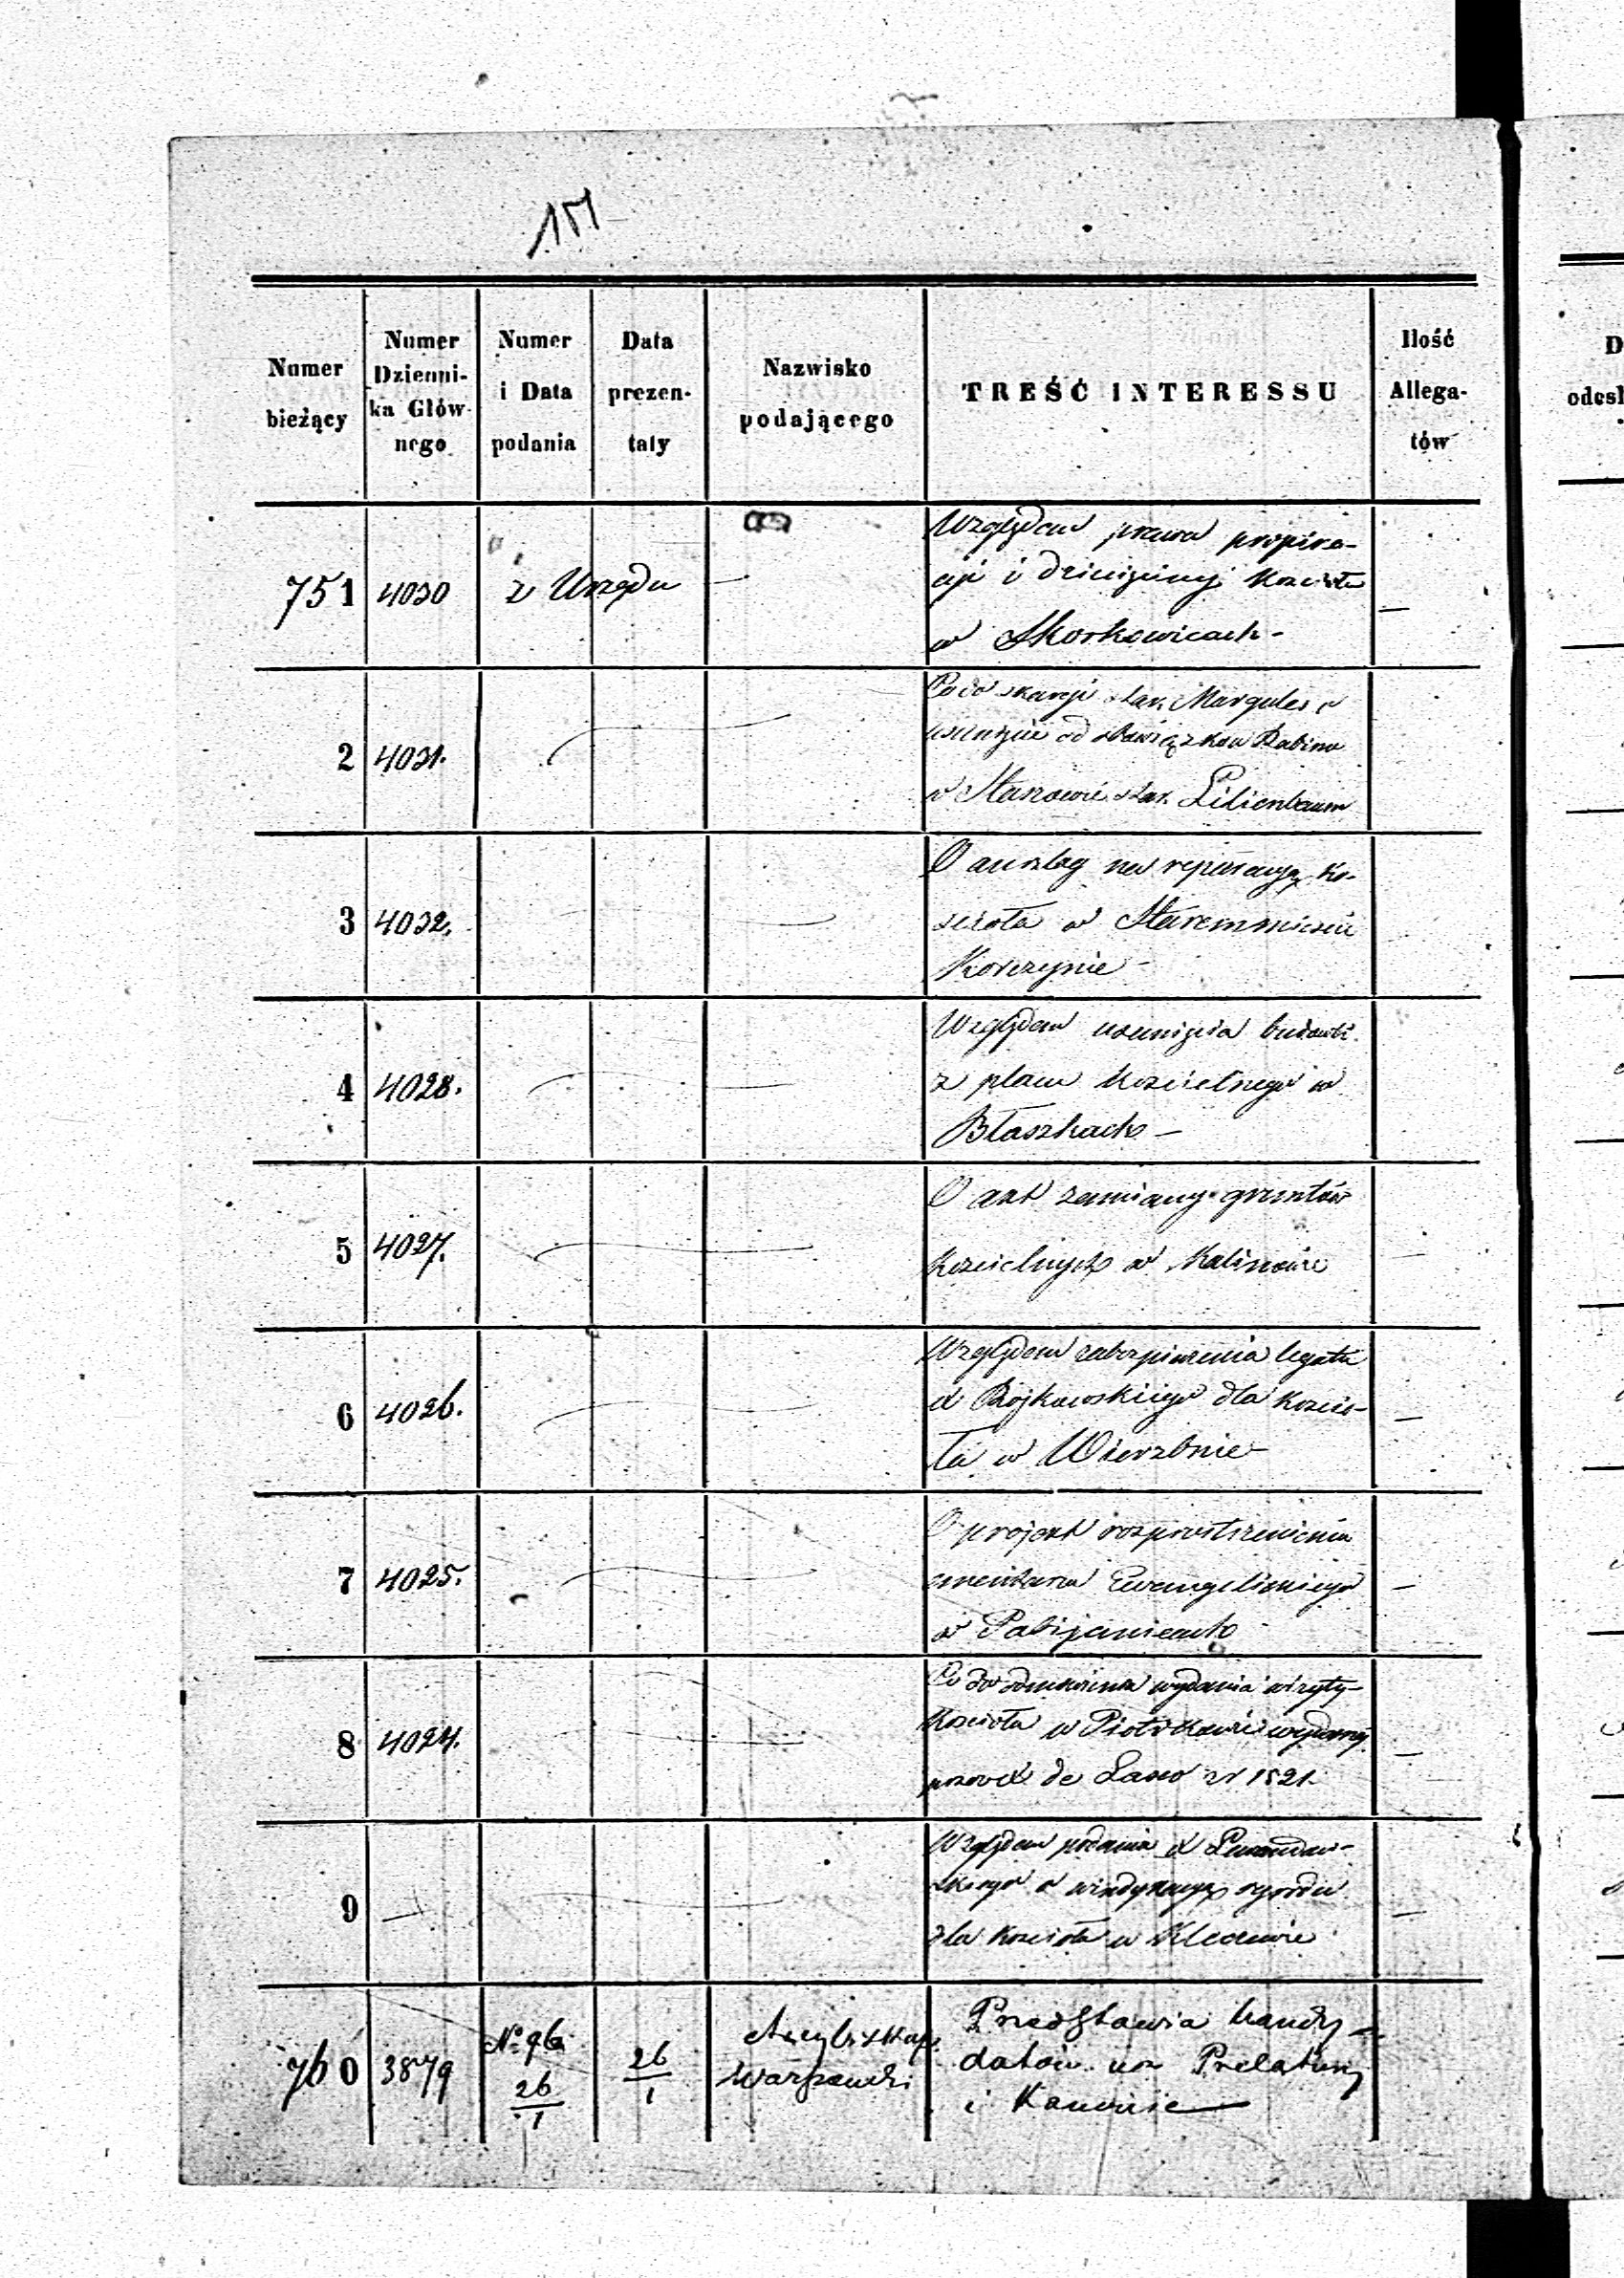 Numer
bieżący
Numer
Dzienni-
ka Głów-
nego
Numer
i Data
podania
Data
prezen-
taty
Nazwisko
podającego
TREŚĆ INTERESSU
Ilość
Allega-
tów
D
odesł
751 4030 z Urzędu —
Względem prawa propina-
cji i dziesięciny Kościoła
w Skorkowicach -
—
2 4031.
Co do skargi star. Margules o
usunięcie od obowiązków Rabina
w Staszowie star. Lilienbaum
3 4032.
O anszlag na reperacyą Ko-
ścioła w Staremmieście
Korczynie -
4 4028.
Względem usunięcia budowli
z placu Kościelnego w
Błaszkach -
5 4027.
O akt zamiany gruntów
Kościelnych w Kalinowie
6 4026.
Względem zabezpieczenia legatu
X Rojkowskiego dla Kościo-
ła w Wierzbnie -
—
7 4025.
O projekt rozprzestrzenienia
cmentarza Ewangelickiego
w Pabijanicach
—
8 4024.
Co do odmówienia wydania wizyty
Kościoła w Piotrkowie wydanej
przez X de Lasco w 1521.
—
9 —
Względem podania X
o windykacyą ogrodu
dla Kościoła w Kleczewie
—
760 3879
No 96
26
1
26
1
Arcybiskup
Warszawski
Przedstawia Kandy-
datów na Prelatury
i Kanonie —